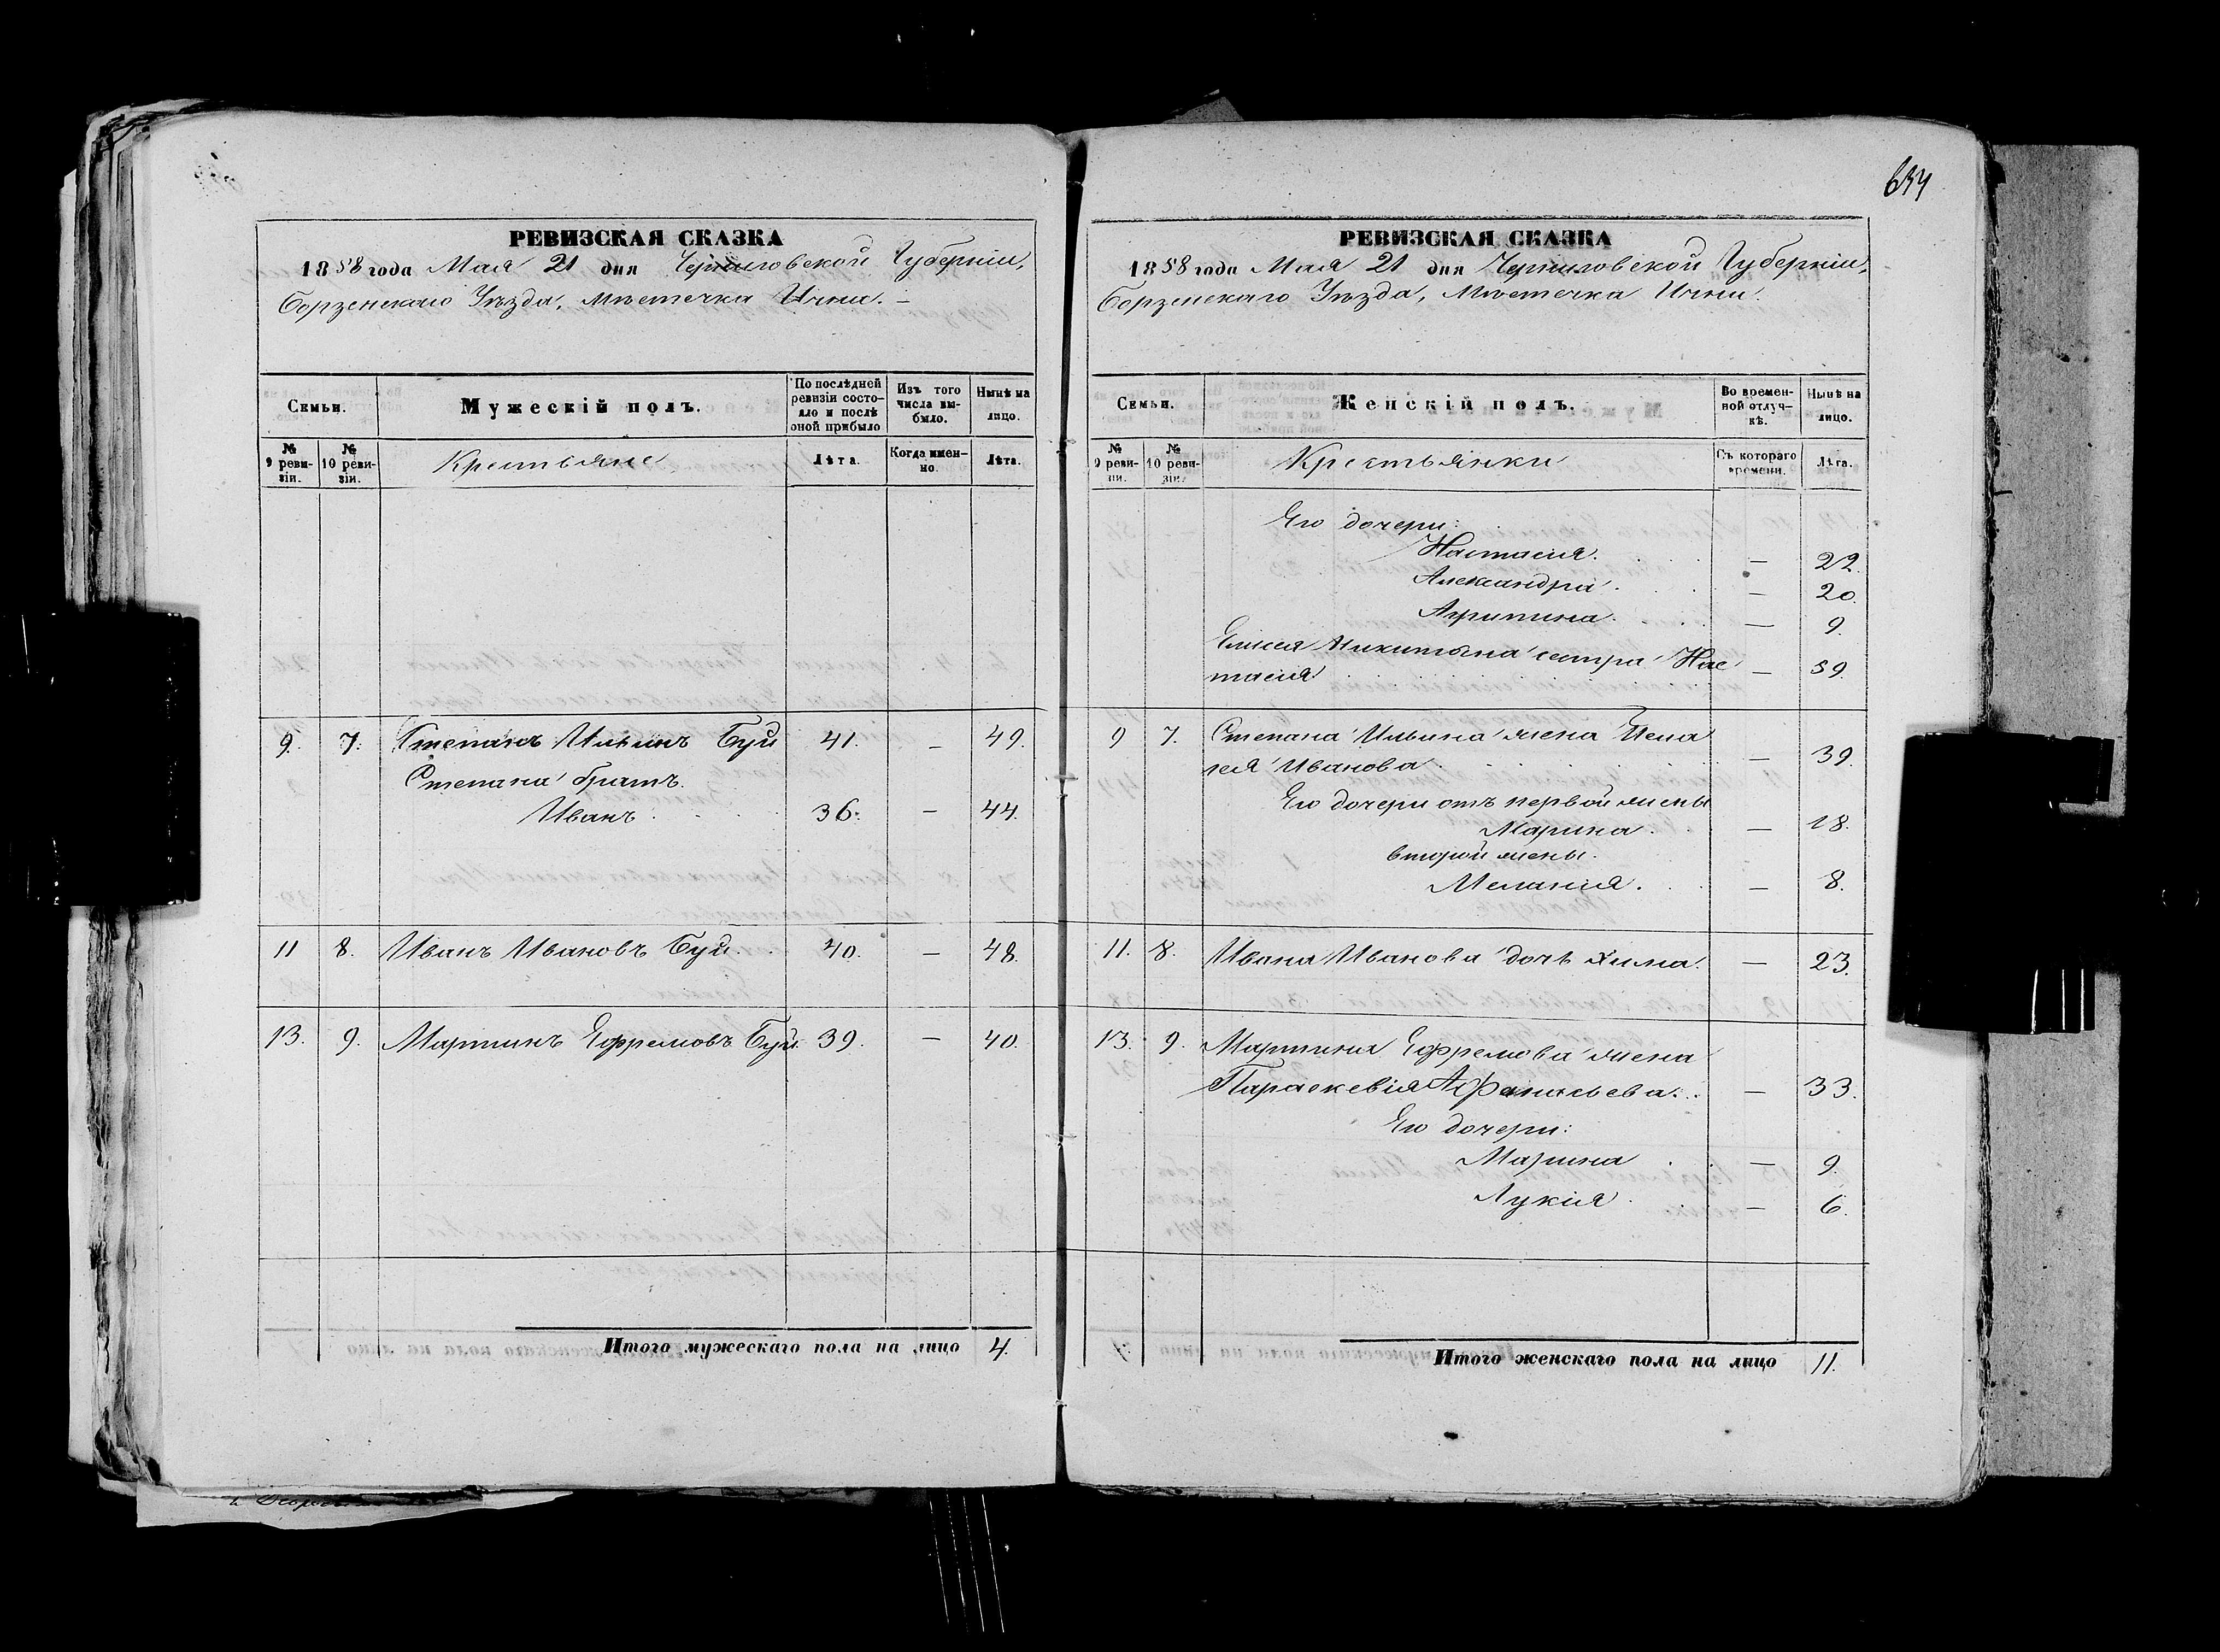 634
РЕВИЗСКАЯ СКАЗКА
1858 года Мая 21 дня Черниговской Губерніи,
Борзенскаго Уѣзда, мѣстечка Ични. –
Семьи.
Мужескій полъ.
По послѣдней ревизіи состояло и послѣ оной прибыло
Изъ того числа выбыло.
Нынѣ на лицо.
№ 9 ревизіи.
№ 10 ревизіи.
Крестьяне
Лѣта.
Когда именно.
Лѣта.
9. 7. Степанъ Ильинъ Буй 41. – 49.
Степана братъ.
Иванъ. 36. – 44.
11 8. Иванъ Ивановъ Буй. 40. – 48.
13. 9. Мартинъ Ефремовъ Буй. 39. – 40.
Итого мужескаго пола на лицо 4.
РЕВИЗСКАЯ СКАЗКА
1858 года Мая 21 дня Черниговской Губерніи,
Борзенскаго Уѣзда, Мѣстечка Ични.
Семьи.
Женскій полъ.
Во временной отлучкѣ.
Нынѣ на лицо.
№ 9 ревизіи.
№ 10 ревизіи.
Крестьянки
Съ котораго времени.
Лѣта.
Его дочери:
Настасія. – 22.
Александра. – 20.
Агрипина. – 9.
Елисея Никитина сестра Нас
тасія. – 39.
9 7. Степана Ильина жена Пела
гея Иванова. – 39.
Его дочери отъ первой жены
Марина. – 18.
второй жены.
Меланія. – 8.
11. 8. Ивана Иванова дочь Хима. – 23.
13. 9. Мартина Ефремова жена
Параскевія Афанасьева. – 33.
Его дочери:
Марина – 9.
Лукія. – 6.
Итого женскаго пола на лицо 11.